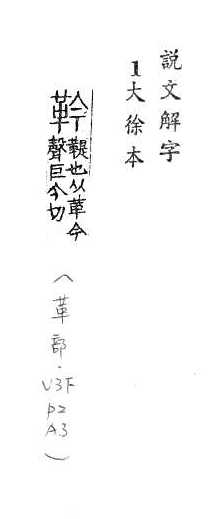 説文解字
1大徐本
靲 鞮也从革今
聲巨今切
(革部・V3F P2 A3)